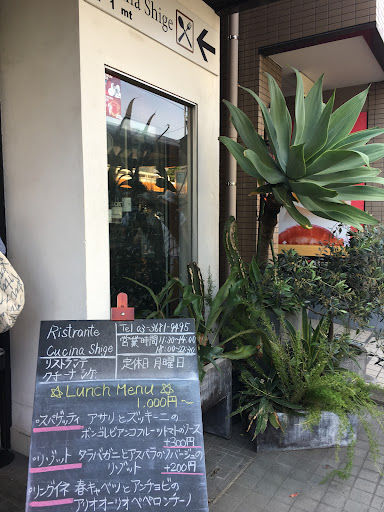 Cucina Shige
1 mt
Ristrante
Cucina Shige
リストランテ
クチーナ シゲ
Tel 03-3681-9495
営業時間 11:30-14:00
18:00-22:30
定休日 月曜日
☆ Lunch Menu ☆
1,000円~
・スパゲッティ アサリとズッキーニの
ボンゴレビアンコフルーツトマトのソース
+300円
・リゾット タラバガニとアスパラのラバージュの
リゾット +200円
・リングイネ 春キャベツとアンチョビの
アリオオーリオペペロンチーノ